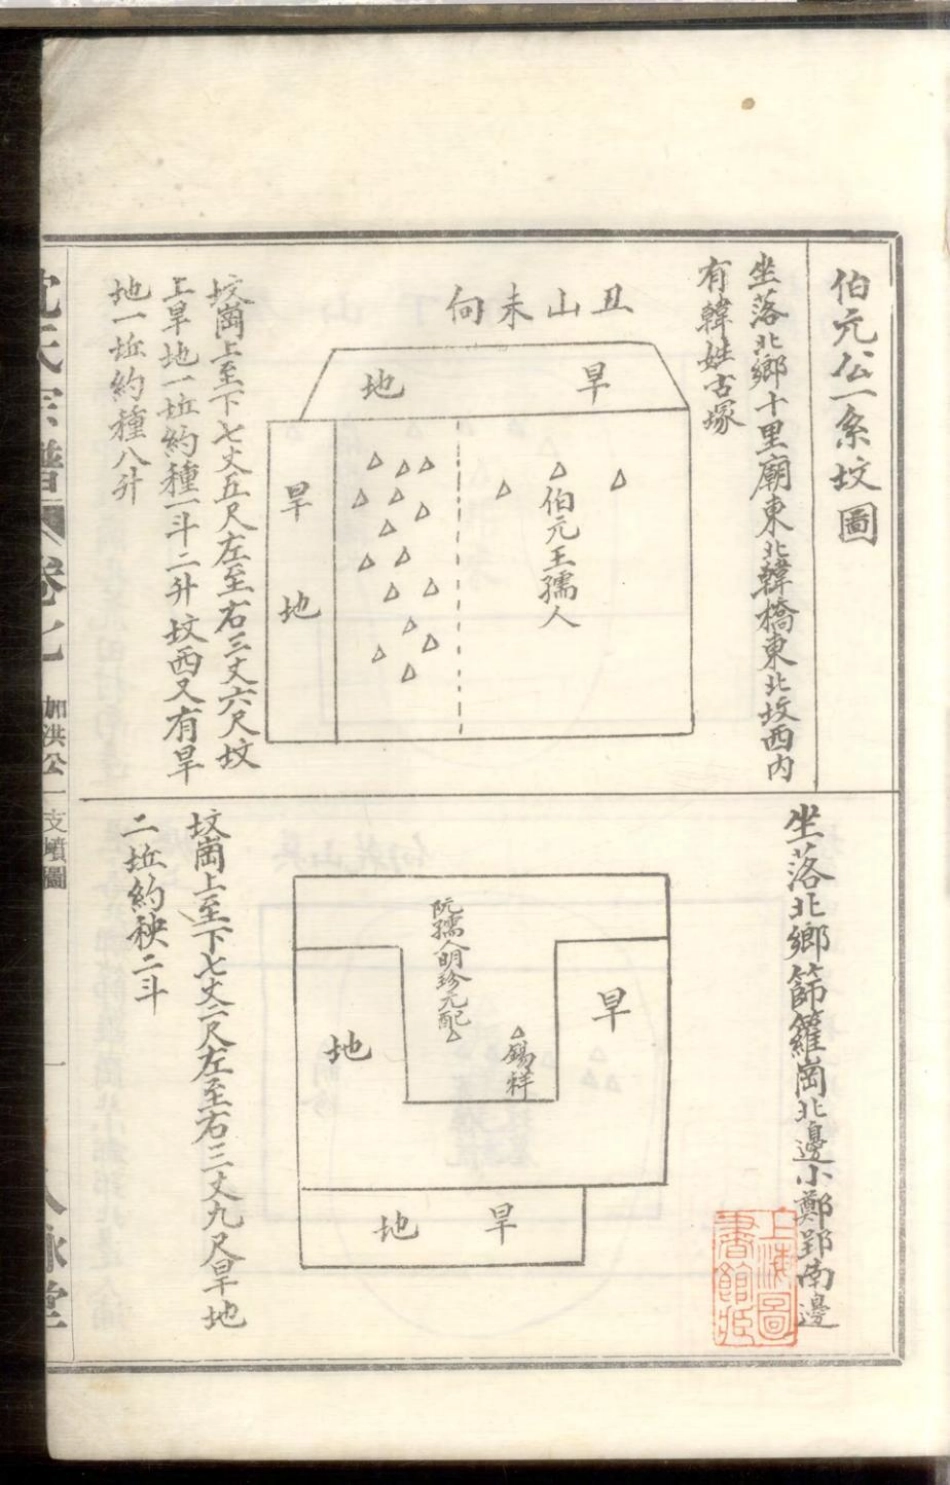 伯元公一系坟圖
坐落北鄉十里廟東北韓橋東北坟西内
有韓姓古塚
丑山未向
旱地
伯元王孺人
旱地
坟崗上至下七丈五尺左至右三丈六尺坟
上旱地一坵約種一斗二升坟西又有旱
地一坵約種八升
坐落北鄉篩籮崗北邊小鄭郢南邊
阮孺人明珍元配
錫祥
旱地
旱地
坟崗上至下七丈二尺左至右三丈九尺旱地
二坵約秧二斗
沈氏宗譜
卷七
加洪公一支墳圖
一
上海圖書館藏